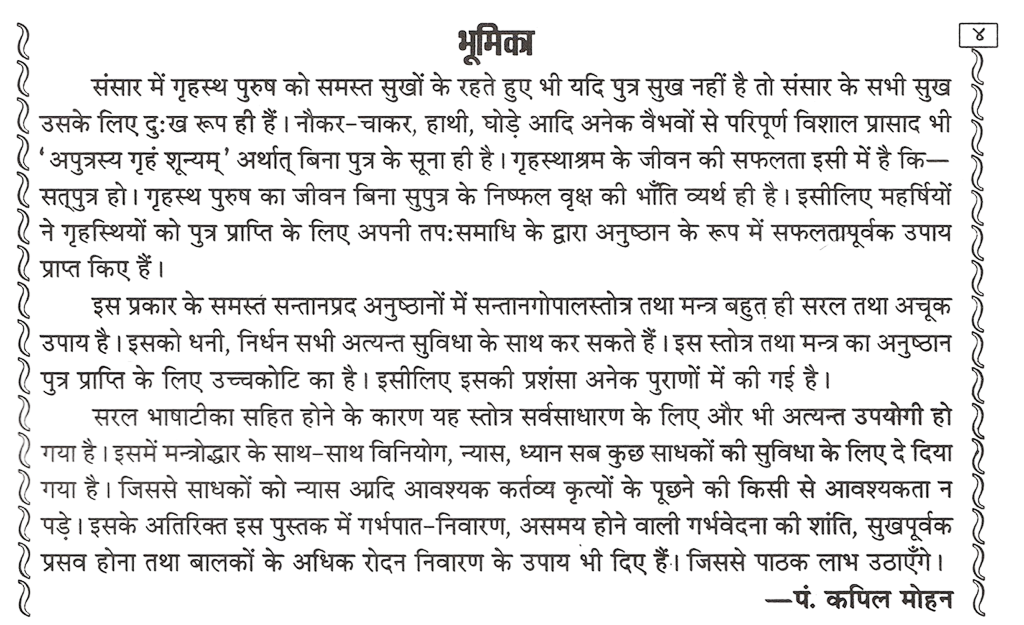 भूमिका
४
संसार में गृहस्थ पुरुष को समस्त सुखों के रहते हुए भी यदि पुत्र सुख नहीं है तो संसार के सभी सुख
उसके लिए दुःख रूप ही हैं। नौकर-चाकर, हाथी, घोड़े आदि अनेक वैभवों से परिपूर्ण विशाल प्रासाद भी
'अपुत्रस्य गृहं शून्यम्' अर्थात् बिना पुत्र के सूना ही है। गृहस्थाश्रम के जीवन की सफलता इसी में है कि—
सत्पुत्र हो। गृहस्थ पुरुष का जीवन बिना सुपुत्र के निष्फल वृक्ष की भाँति व्यर्थ ही है। इसीलिए महर्षियों
ने गृहस्थियों को पुत्र प्राप्ति के लिए अपनी तपःसमाधि के द्वारा अनुष्ठान के रूप में सफलतापूर्वक उपाय
प्राप्त किए हैं।
इस प्रकार के समस्त सन्तानप्रद अनुष्ठानों में सन्तानगोपालस्तोत्र तथा मन्त्र बहुत ही सरल तथा अचूक
उपाय है। इसको धनी, निर्धन सभी अत्यन्त सुविधा के साथ कर सकते हैं। इस स्तोत्र तथा मन्त्र का अनुष्ठान
पुत्र प्राप्ति के लिए उच्चकोटि का है। इसीलिए इसकी प्रशंसा अनेक पुराणों में की गई है।
सरल भाषाटीका सहित होने के कारण यह स्तोत्र सर्वसाधारण के लिए और भी अत्यन्त उपयोगी हो
गया है। इसमें मन्त्रोद्धार के साथ-साथ विनियोग, न्यास, ध्यान सब कुछ साधकों की सुविधा के लिए दे दिया
गया है। जिससे साधकों को न्यास आदि आवश्यक कर्तव्य कृत्यों के पूछने की किसी से आवश्यकता न
पड़े। इसके अतिरिक्त इस पुस्तक में गर्भपात-निवारण, असमय होने वाली गर्भवेदना की शांति, सुखपूर्वक
प्रसव होना तथा बालकों के अधिक रोदन निवारण के उपाय भी दिए हैं। जिससे पाठक लाभ उठाएँगे।
—पं. कपिल मोहन